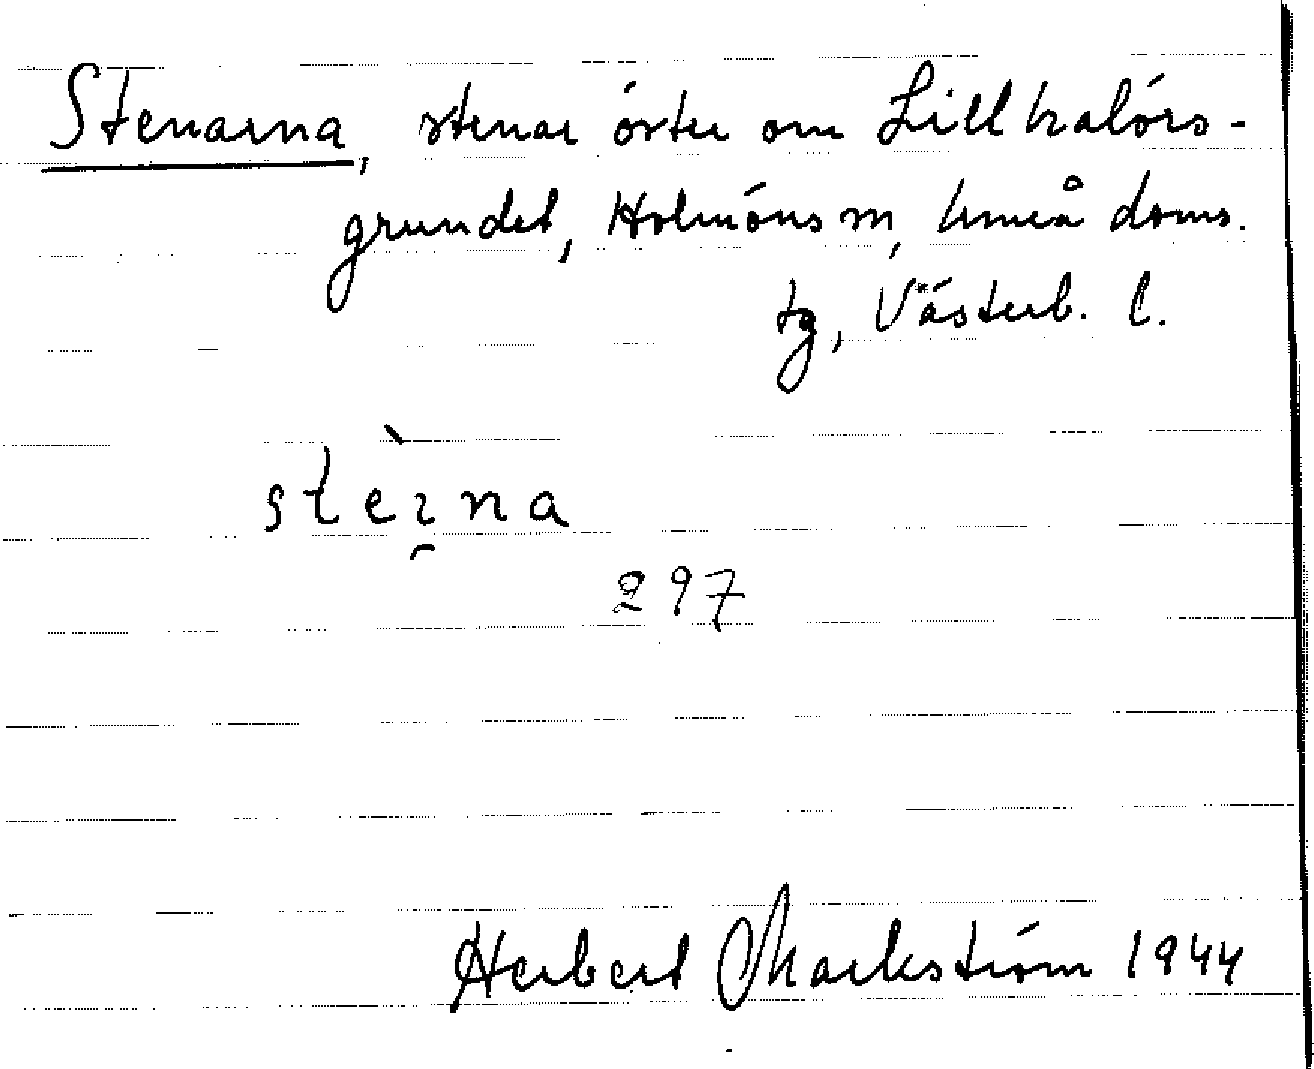 Stenarna, stenar öster om Lillhalörs-
grundet, Holmöns sn, Umeå doms.
tg, Västerb. l.
stèi̯na
297
Herbert Markström 1944